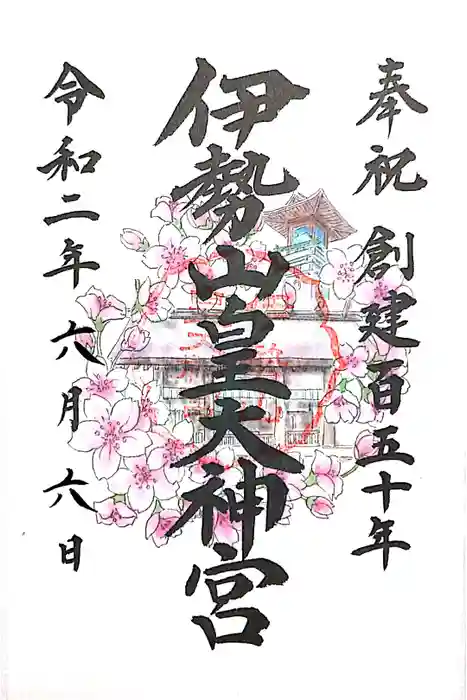 奉祝 創建百五十年
伊勢山皇大神宮
令和二年 六月 六日